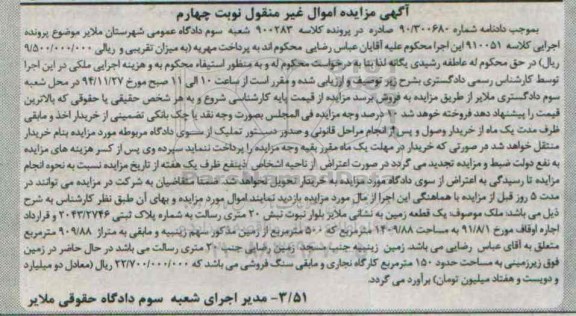 آگهی مزایده اموال غیر منقول نوبت چهارم
بموجب دادنامه شماره ۹۰/۳۰۰۶۸۰ صادره در پرونده کلاسه ۹۰۰۲۸۳ شعبه سوم دادگاه عمومی شهرستان ملایر موضوع پرونده
اجرایی کلاسه ۹۱۰۰۵۱ این اجرا محکوم علیه آقایان عباس رضایی محکوم اند به پرداخت مهریه (به میزان تقریبی و ریالی ۹/۵۰۰/۰۰۰/۰۰۰
ریال) در حق محکوم له عاطفه رشیدی یگانه لذا بنا به درخواست محکوم له و به منظور استیفاء محکوم به و هزینه اجرایی ملکی در این اجرا
توسط کارشناس رسمی دادگستری بشرح زیر توصیف و ارزیابی شده و مقرر است از ساعت ۱۰ الی ۱۱ صبح مورخ ۹۴/۱۱/۲۷ در محل شعبه
سوم دادگستری ملایر از طریق مزایده به فروش برسد مزایده از قیمت پایه کارشناسی شروع و به هر شخص حقیقی یا حقوقی که بالاترین
قیمت را پیشنهاد دهد فروخته خواهد شد ۱۰ درصد وجه مزایده فی المجلس بصورت وجه نقد یا چک بانکی تضمینی از خریدار اخذ و مابقی
ظرف مدت یک ماه از خریدار وصول و پس از انجام مراحل قانونی و صدور دستور تملیک از سوی دادگاه مربوطه مورد مزایده بنام خریدار
منتقل خواهد شد در صورتی که خریدار در مهلت یک ماه مقرر بقیه وجه مزایده را پرداخت ننماید سپرده وی پس از کسر هزینه های مزایده
به نفع دولت ضبط و مزایده تجدید می گردد در صورت اعتراض از ناحیه اشخاص ذینفع ظرف یک هفته از تاریخ مزایده نسبت به نحوه انجام
مزایده تا رسیدگی به اعتراض از سوی دادگاه مورد مزایده به خریدار تحویل نخواهد شد. ضمنا متقاضیان به شرکت در مزایده می توانند در
مدت ۵ روز قبل از مزایده با هماهنگی این اجرا از مال مورد مزایده بازدید نمایند. اموال مورد مزایده و بهای آن طبق نظر کارشناس به شرح
ذیل می باشد: ملک موصوف یک قطعه زمین به نشانی ملایر بلوار نبوت نبش ۲۰ متری رسالت به شماره پلاک ثبتی ۲۰۴۳/۲۷۴۶ و قرارداد
اجاره اوقاف مورخ ۹۱/۸/۱ به مساحت ۱۴۰۹/۸۸ مترمربع که ۵۰۰ مترمربع از زمین مذکور سهم زینبیه و مابقی به متراژ ۹۰۹/۸۸ مترمربع
متعلق به آقای عباس رضایی می باشد. زمین زینبیه جنب مسجد، زمین رضایی جنب ۲۰ متری رسالت می باشد در حال حاضر در زمین
فوق زیرزمینی به مساحت حدود ۱۵۰ مترمربع کارگاه نجاری و مابقی سنگ فروشی می باشد که ۲۲/۷۰۰/۰۰۰/۰۰۰ ریال (معادل دو میلیارد
و دویست و هفتاد میلیون تومان) برآورد می گردد.
۳/۵۱- مدیر اجرای شعبه سوم دادگاه حقوقی ملایر